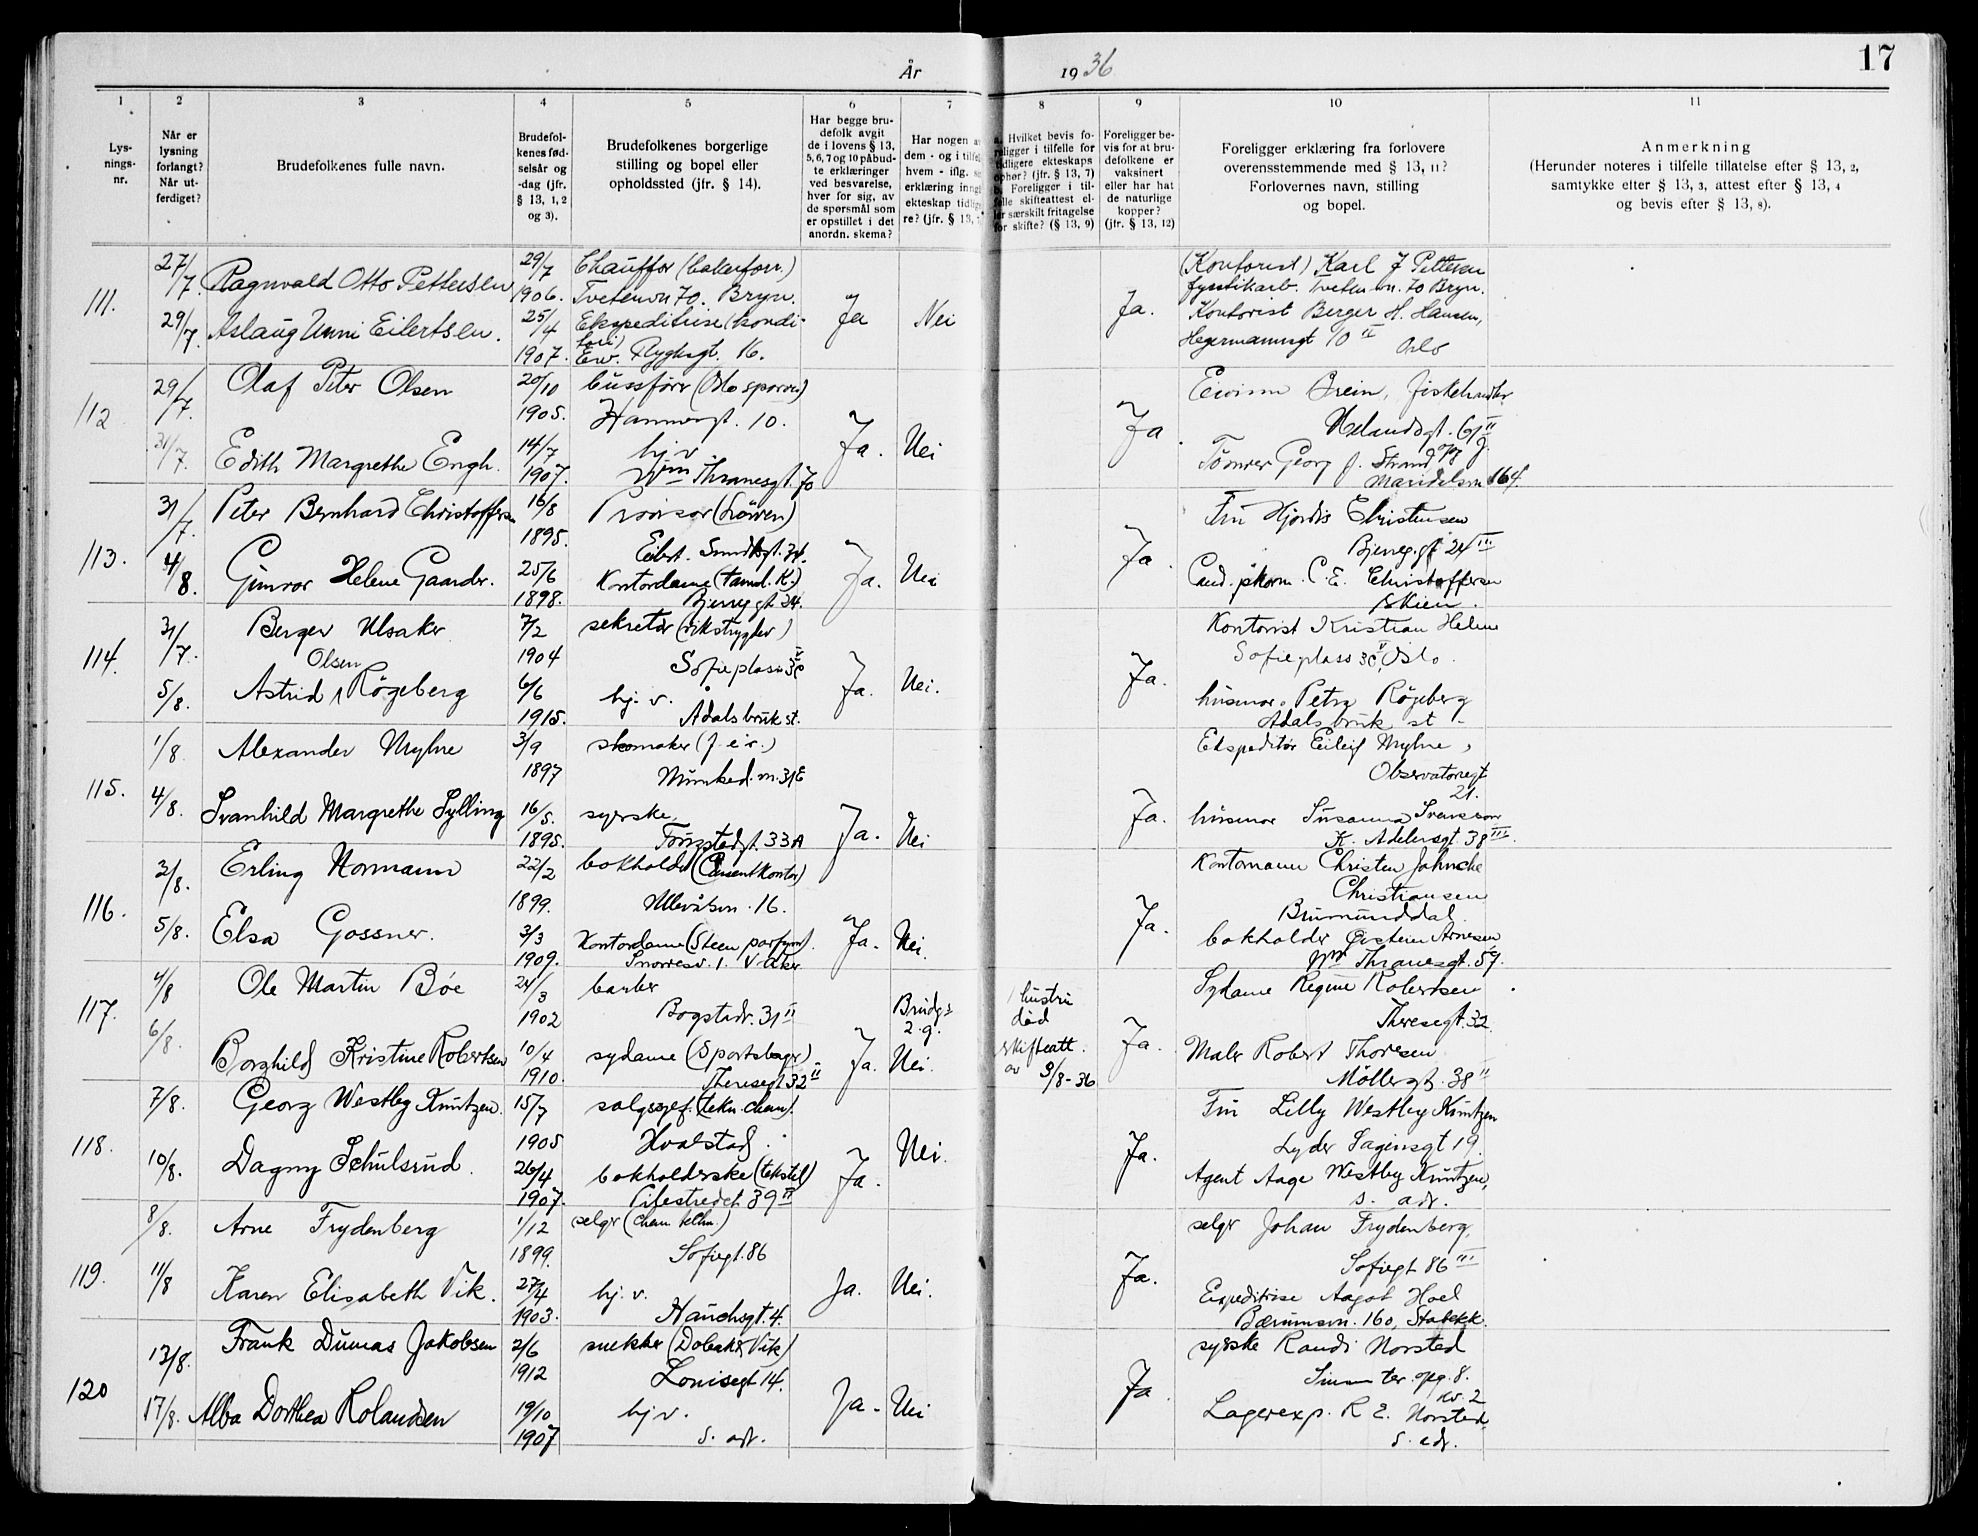 År 1936
17
1 2 3 4 5 6 7 8 9 10 11
Lys-
nings-
nr.
Når er
lysning
forlangt?
Når ut-
ferdiget?
Brudefolkenes fulle navn.
Brudefol-
kenes fød-
selsår og
-dag (jfr.
§ 13, 1, 2
og 3).
Brudefolkenes borgerlige
stilling og bopel eller
opholdssted (jfr. § 14).
Har begge bru-
defolk avgit
de i lovens § 13,
5, 6, 7 og 10 påbud-
te erklæringer
ved besvarelse,
hver for sig, av
de spørsmål som
er opstillet i det
anordn. skema?
Har nogen a
dem - og i tilfel
hvem - iflg. s
erklæring inng
ekteskap tidlig
re? (jfr. § 13,
a. Hvilket bevis fo-
religger i tilfelle for
tidligere ekteskaps
ophør? (jfr. § 13, 7)
b. Foreligger i til-
felle skifteattest el-
ler særskilt fritagelse
for skifte? (§ 13, 9)
Foreligger be-
vis for at bru-
defolkene er
vaksinert
eller har hat
de naturlige
kopper?
(jfr. § 13, 12)
Foreligger erklæring fra forlovere
overensstemmende med § 13, 11?
Forlovernes navn, stilling
og bopel.
Anmerkning
(Herunder noteres i tilfelle tillatelse efter § 13, 2,
samtykke efter § 13, 3, attest efter § 13, 4
og bevis efter § 13, 8).
111. 27/7. Ragnvald Otto Pettersen 29/7 1906. Chauffør
Tvetenvn 70. Bryn.
29/7. Aslaug Unni Eilertsen. 25/4 1907. Ekspeditrise (kondi-
tori)
Ew. Ryghsgt. 16.
Ja Nei Ja.
(Kontorist) Karl J Pettersen
fyrstikarb. Tveten vn. 70 Bryn.
Kontorist Berger H. Hansen,
Hegermannsgt 10 II Oslo
112 29/7. Olaf Peter Olsen 20/10 1905. bussfører (Oslo sporvei)
Hammergt. 10.
31/7. Edith Margrethe Engh. 14/7 1907. hj. v.
Wm Thranesgt. 70
Ja. Nei Ja.
Eivinn Brein, fiskehandler
Uelandsgt. 61 II
Tømrer Georg J. Strand
Maridalsvn 164.
113. 31/7. Peter Bernhard Christoffersen 16/8 1895. Provisor (Løven)
Eilert Sundtsgt. 34.
4/8. Gunvor Helene Gaarder. 25/6 1898. Kontordame
Bjerreg gt 24.
Ja. Nei Ja.
Fru Hjørdis Christensen
Bjerreg. gt 24 III
Cand. pharm. C. E. Christoffersen
Skien.
114. 31/7. Berger Ulsaker 7/2 1904 sekretær (rikstrygdev)
Sofieplass 3c
5/8. Astrid Olsen Røgeberg 6/6 1915. hj. v.
Ådalsbruk st.
Ja. Nei. Ja.
Kontorist Kristian Helme
Sofieplass 3c, Oslo.
husmor Petra Røgeberg
Adalsbruk st -
115. 1/8. Alexander Myhre 3/9 1897 skomaker
Munked. vn. 31E
4/8. Svanhild Margrethe Sylling 16/5. 1895. syerske.
33A
Ja. Nei Ja.
Ekspeditør Eileif Myhre,
Observatoriegt
21.
husmor Susanna Svensson
K. Adelersgt. 38 III.
116. 3/8. Erling Normann 22/2 1899. bokholder (Cementkontor)
Ullevålsvn. 16.
5/8. Elsa Gossner. 3/3 1909. Kontordame (Steen parfym).
Snorresv. 1. V Aker
Ja. Nei. Ja.
Kontormann Christen Jahncke
Christiansen
Brumunddal.
bokholder Øistein Arnesen
Wm Thranesgt. 59.
117. 4/8 Ole Martin Bøe 24/3 1902 barber
Bogstadv. 31 II
6/8. Borghild Kristine Robertsen 10/4 1910. sydame
Theresegt 32 II
Ja. Brudg.
2. g.
Nei.
hustru
død
skifteatt.
av 3/8-36
Ja.
Sydame Regine Robertsen
Theresegt. 32
Maler Robert Thoresen
Møllergt. 38 II
118. 7/8. Georg Westby Knutzen. 15/7 1905 salgssjef. (tekn. chem).
Hvalstad.
10/8. Dagny Schulsrud. 26/4 1907. bokholderske (tekstil)
Pilestredet 39 II
Ja. Nei. Ja.
Fru Lilly Westby Knutzen
Lyder Sagensgt 19.
Agent Aage Westby Knutzen,
s. adr.
119. 8/8. Arne Frydenberg 1/12 1899. selger (Chem techn.)
Sofiegt. 86
11/8 Karen Elisabeth Vik. 27/4 1903. hj. v.
Hauchsgt. 4.
Ja. Nei. Ja.
selger Johan Frydenberg,
Sofiegt 86 III
Expeditrise Aagot Hoel
Bærumsvn. 160, Stabekk.
120 13/8. Frank Dumas Jakobsen 2/6 1912 snekker
Louisegt 14.
17/8. Alba Dorthea Rolandsen 19/10 1907 hj v.
s. adr.
Ja. Nei Ja.
syerske Randi Norsted
opg. 8.
Lagerexp. R E. Norsted,
s. adr.